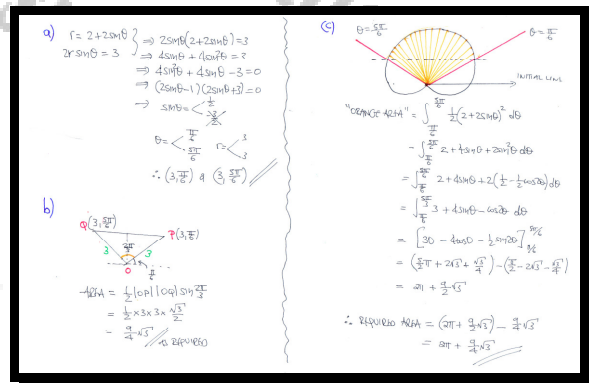 a)
r = 2+2sinθ
2rsinθ = 3
⇒ 2sinθ(2+2sinθ)=3
⇒ 4sinθ + 4sin²θ = 3
⇒ 4sin²θ + 4sinθ - 3 = 0
⇒ (2sinθ-1)(2sinθ+3)=0
⇒ sinθ = < 1/2
-3/2
θ = < π/6 r = < 3
5π/6 3
∴ (3, π/6) & (3, 5π/6)
b)
Q(3, 5π/6)
P(3, π/6)
2π/3
3 3
O
π/6
AREA = 1/2 |OP| |OQ| sin 2π/3
= 1/2 × 3 × 3 × √3/2
= 9/4 √3
AS REQUIRED
(c)
θ = 5π/6
θ = π/6
INITIAL LINE
"ORANGE AREA" = ∫_{π/6}^{5π/6} 1/2 (2+2sinθ)² dθ
= ∫_{π/6}^{5π/6} 2 + 4sinθ + 2sin²θ dθ
= ∫_{π/6}^{5π/6} 2 + 4sinθ + 2(1/2 - 1/2 cos2θ) dθ
= ∫_{π/6}^{5π/6} 3 + 4sinθ - cos2θ dθ
= [3θ - 4cosθ - 1/2 sin2θ]_{π/6}^{5π/6}
= (5/2 π + 2√3 + √3/4) - (π/2 - 2√3 - √3/4)
= 2π + 9/2 √3
∴ REQUIRED AREA = (2π + 9/2 √3) - 9/4 √3
= 2π + 9/4 √3